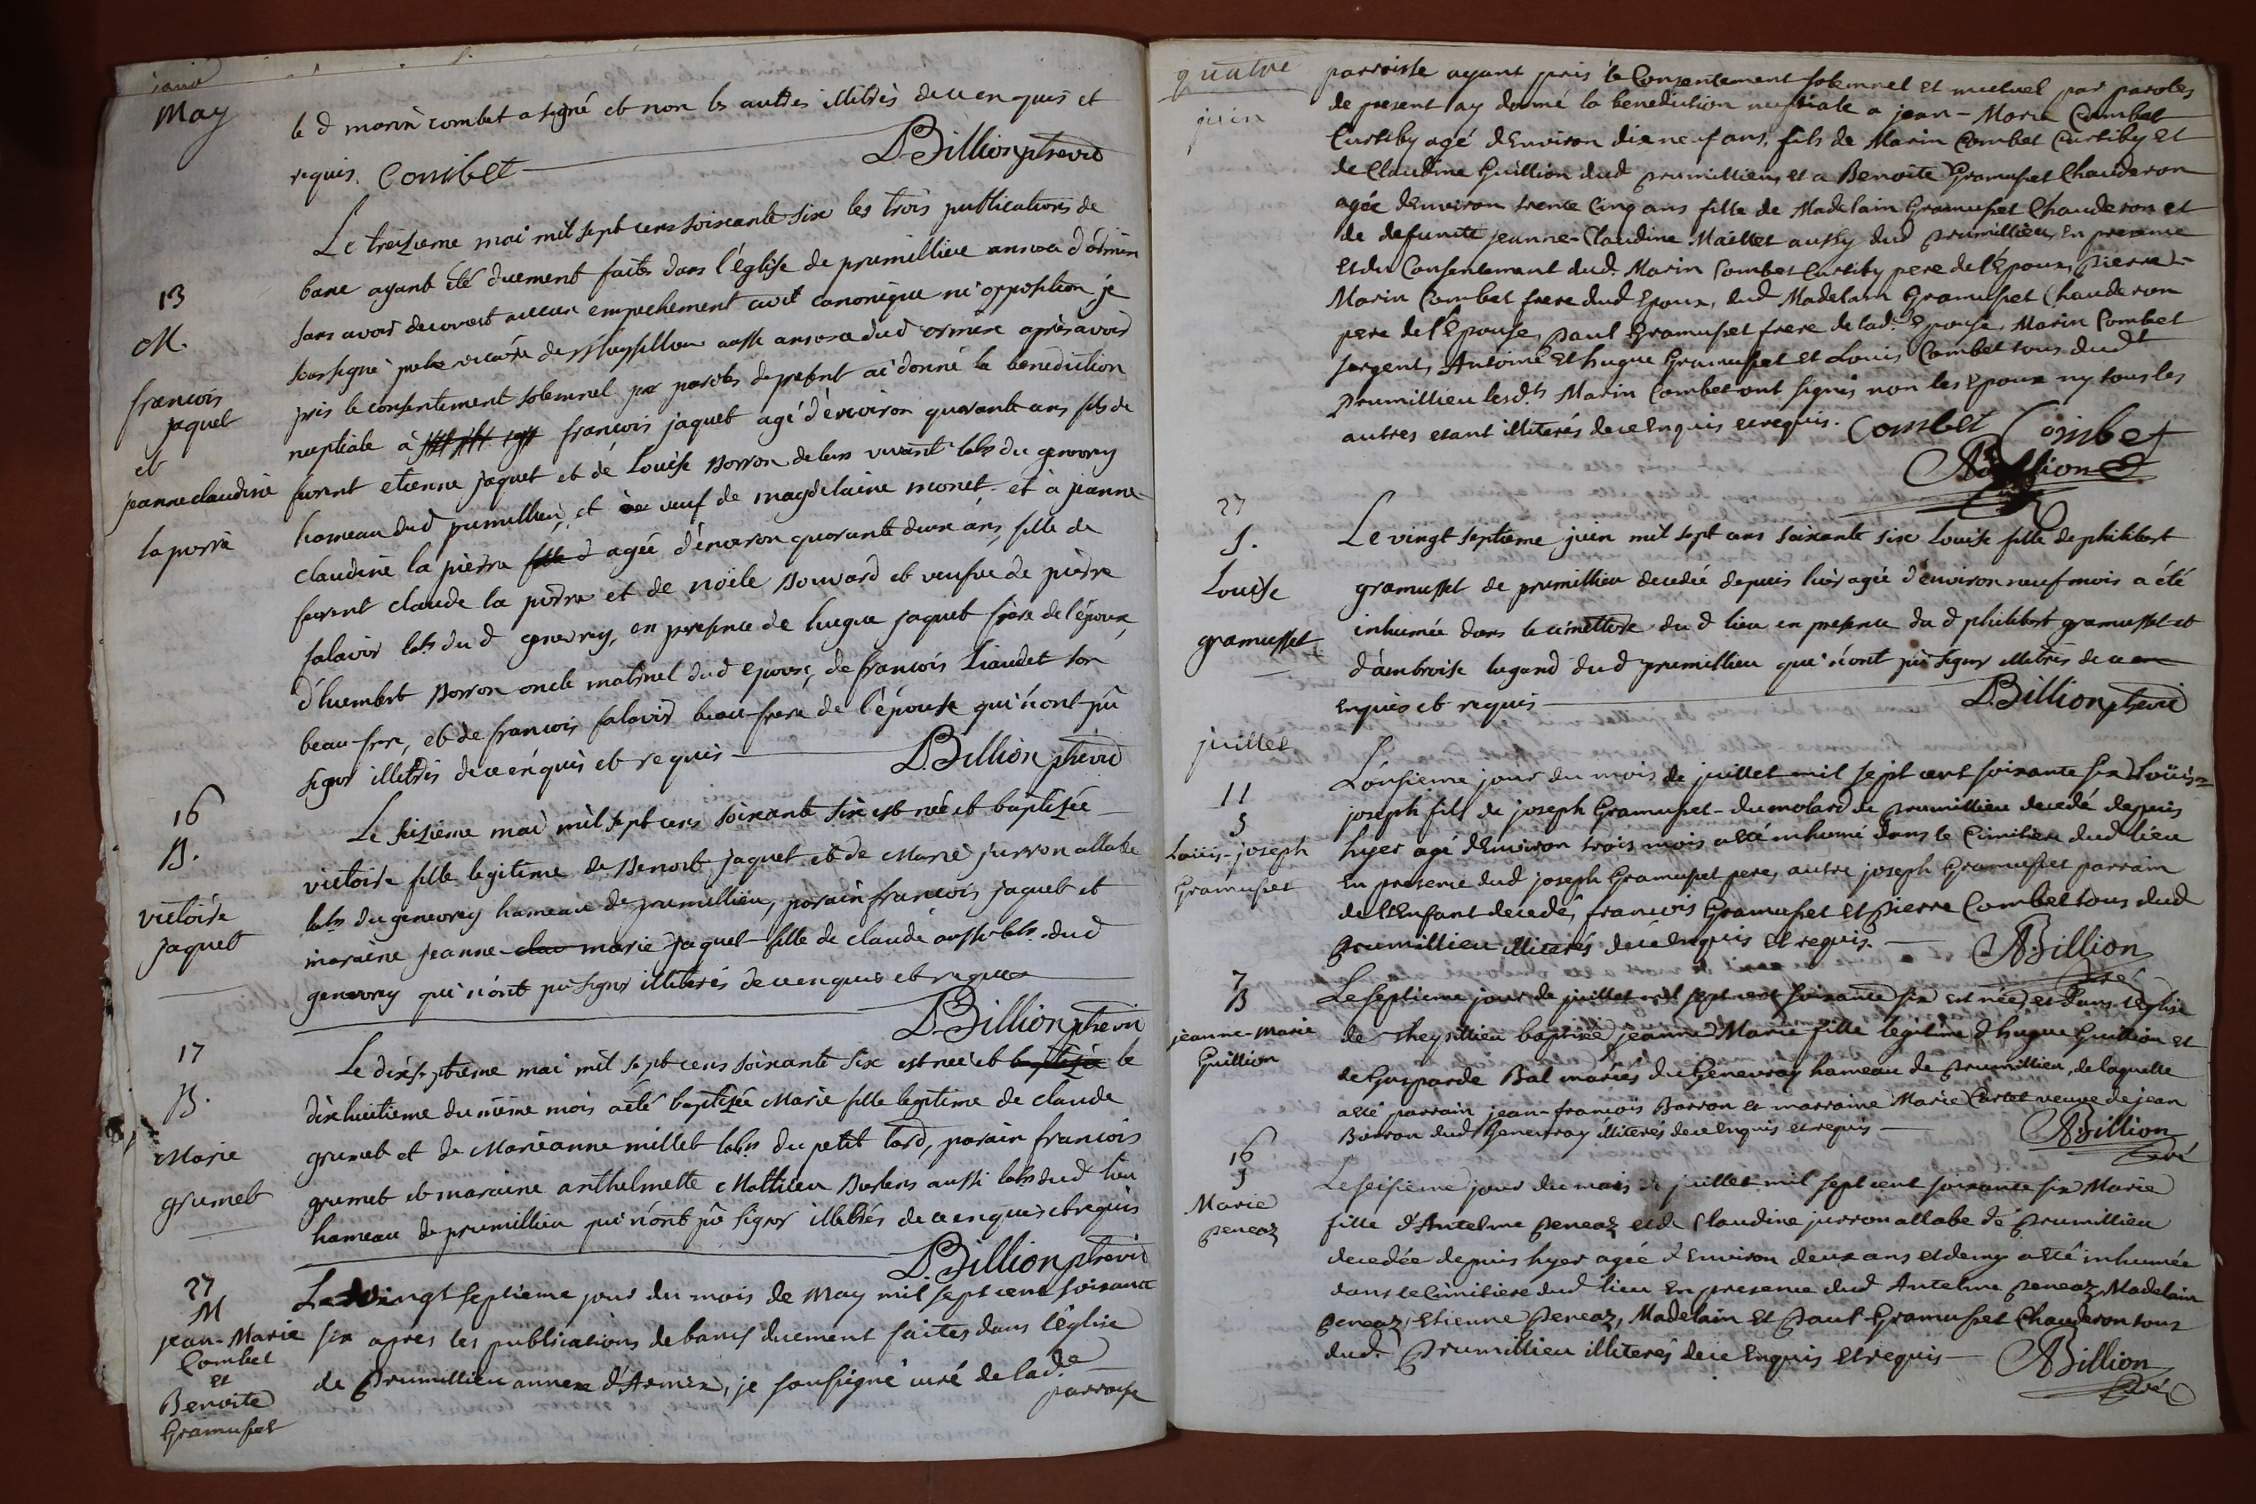 May
le d marin combet a signé et non les autres illiterés de ce enquis et
requis. Combet
D. Billion ptre vic
13
M.
francois
jaquet
et
jeanne claudine
la pierre
Le treizieme mai mil sept cens soixante six les trois publications de
banc ayant été duement faites dans l'église de prumillieu annexe d'ormen
sans avoir decouvert aucun empechement civil canonique ni opposition, je
soussigné ptre vicaire de aussi annexe dud ormen après avoir
pris le consentement solemnel par paroles de present ai donné la benediction
nuptiale à francois jaquet agé d'environ quarante ans fils de
furent etienne jaquet et de Louise Borron de leur vivant labrs du genevrey
hameau dud prumillieu, et veuf de magdelaine monet et à jeanne
claudine la pierre agée d'environ quarante deux ans, fille de
furent claude la pierre et de noële Bouvard et veufve de pierre
falavir labr dud genevrey, en presence de hugue jaquet frere de l'époux,
d'humbert Borron oncle maternel dud epoux, de francois Liaudet son
beau frere, et de francois falavir beau-frere de l'épouse qui n'ont pu
signer illiterés de ce enquis et requis
D. Billion ptre vic
16
B.
victoire
jaquet
Le seizieme mai mil sept cens soixante six est née et baptisée
victoire fille legitime de Benoit jaquet et de Marie jurron allabe
labrs du genevrey hameau de prumillieu, parain francois jaquet et
maraine jeanne-marie jaquet fille de claude aussi labr dud
genevrey qui n'ont pu signer illiterés de ce enquis et requis
D. Billion ptre vic
17
B.
Marie
grumet
Le dixseptieme mai mil sept cens soixante six est née et baptisée le
dix huitieme du même mois a été baptisée Marie fille legitime de claude
grumet et de Marieanne millet labrs du petit lard, parain francois
grumet et maraine anthelmette Mathieu aussi labrs dud lieu
hameau de prumillieu qui n'ont pu signer illiterés de ce enquis et requis
D. Billion ptre vic
27
M
jean-Marie
Combet
Et
Benoite
Gramusset
Le vingt septieme jour du mois de May mil sept cent soixante
six apres les publications de bancs duement faites dans l'église
de Prumillieu annexe d'Armix, je soussigné curé de lade
parroisse
quatre
juin
parroisse ayant pris le Consentement solemnel et mutuel par paroles
de present ay donné la benediction nuptiale a jean-Marie Combet
Curtiby agé dEnviron dix neuf ans, fils de Marin Combet Curtiby et
de Claudine Guillion dud prumillieu, et a Benoite Gramusset Chauderon
agée dEnviron trente Cinq ans fille de Madelain Gramusset Chauderon et
de defunte jeanne-Claudine Maillet aussy dud prumillieu, En presence
et du Consentement dud. Marin Combet Curtiby pere de l'Epoux, pierre-
Marin Combet frere dud Epoux, dud Madelain Gramusset Chauderon
pere de l'Epouse, paul Gramusset frere de lade Epouse, Marin Combet
sergent, Antoine et hugue Gramusset et Louis Combet tous dudt
prumillieu lesdts Marin Combet ont signés non les Epoux ny tous les
autres etant illiterés de ce Enquis et requis. Combet Combet
Billion
27
S.
Louise
gramusset
Le vingt septieme juin mil sept cens soixante six Louise fille de philibert
gramusset de prumillieu decedée depuis hier agée d'environ neuf mois a été
inhumée dans le cimettiere du d lieu en presence du d philibert gramusset et
d'ambroise lugand dud prumillieu qui n'ont pu signer illiterés de ce
enquis et requis
D. Billion ptre vic
juillet
11
S
Loüis-joseph
Gramusset
L'onsieme jour du mois de juillet mil sept cent soixante six Loüis-
joseph fils de joseph Gramusset-dumolard de Prumillieu decedé depuis
hyer agé dEnviron trois mois a eté inhumé dans le Cimitiere dud lieu
En presence dud joseph Gramusset pere, autre joseph Gramusset parrain
de l'Enfant decedé, francois Gramusset et pierre Combet tous dud
prumillieu illiterés de ce Enquis et requis.
Billion
curé
7
B
jeanne-marie
Guillion
Le septieme jour de juillet mil sept cent soixante six est née, et dans l'Eglise
de Theysillieu baptisée jeanne Marie fille legitime d'hugue Guillion et
de Gasparde Bal mariés du Genevray hameau de Prumillieu, de laquelle
a eté parrain jean-francois Borron et marraine Marie Curtet veuve de jean
Borron dud Genevray illiterés de ce Enquis et requis
Billion
curé
16
S
Marie
peneaz
Le seisieme jour du mois de juillet mil sept cent soixante six Marie
fille d'Antelme peneaz et de Claudine jurron allabe de prumillieu
decedée depuis hyer agée d'Environ deux ans et demy a eté inhumée
dans le Cimitiere dud lieu En presence dud Antelme peneaz, Madelain
peneaz, Etienne peneaz, Madelain et paul Gramusset Chauderon tous
dud. Prumillieu illiterés de ce Enquis et requis
Billion
curé